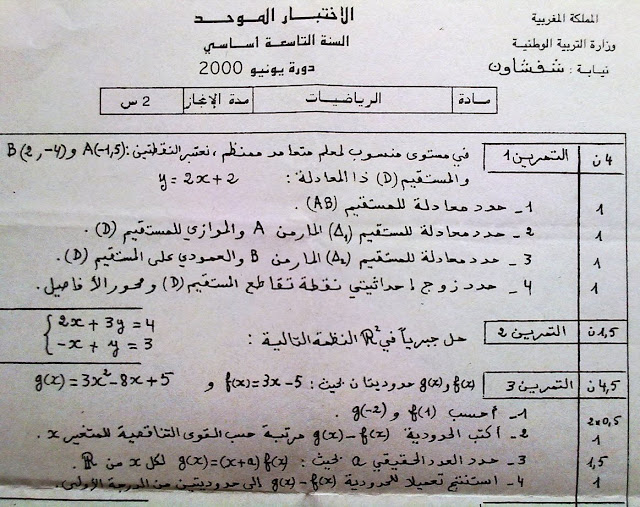 المملكة المغربية
وزارة التربية الوطنية
نيابة : شفشاون
الاختبار الموحد
السنة التاسعة أساسي
دورة يونيو 2000
مادة الرياضيات مدة الإنجاز 2 س
4ن التمرين 1 في مستوى منسوب لمعلم متعامد ممنظم ، نعتبر النقطتين : A(-1,5) و B(2,-4)
والمستقيم (D) ذا المعادلة : y = 2x + 2
1 1 - حدد معادلة للمستقيم (AB) .
1 2 - حدد معادلة للمستقيم (Δ₁) المار من A والموازي للمستقيم (D) .
1 3 - حدد معادلة للمستقيم (Δ₂) المار من B والعمودي على المستقيم (D) .
1 4 - حدد زوج إحداثيتي نقطة تقاطع المستقيم (D) ومحور الأفاصيل .
1,5ن التمرين 2 حل جبرياً في R² النظمة التالية : { 2x + 3y = 4
-x + y = 3
4,5ن التمرين 3 f(x) و g(x) حدوديتان بحيث : f(x) = 3x - 5 و g(x) = 3x² - 8x + 5
2x0,5 1 - أحسب f(1) و g(-2) .
1 2 - أكتب الحدودية g(x) - f(x) مرتبة حسب القوى التناقصية للمتغير x .
1,5 3 - حدد العدد الحقيقي a بحيث : g(x) = (x+a) f(x) لكل x من R .
1 4 - استنتج تعميلا للحدودية g(x) - f(x) إلى حدوديتين من الدرجة الأولى .